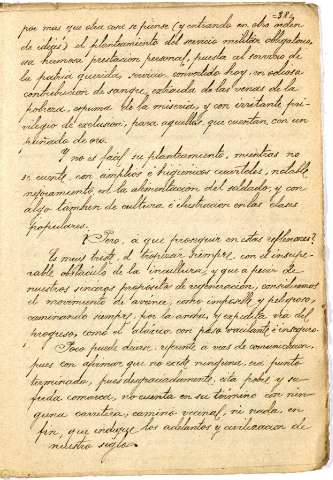 -38-
por mas que otra cosa se piense (y entrando en otro orden
de ideas) el planteamiento del servicio militar obligatorio,
esa hermosa prestación personal, puesta al servicio de
la patria querida, servicio convertido hoy en odiosa
contribución de sangre, extraida de las venas de la
pobreza, esprima de la miseria, y con irritante pri-
vilegio de exclusion, para aquellos que cuentan con un
puñado de oro.
Y no es fácil su planteamiento, mientras no
se cuente con amplios é higienicos cuarteles, notable
mejoramiento en la alimentación del soldado, y con
algo tambien de cultura é ilustracion en las clases
populares.
¿Pero, a que proseguir en estas reflexiones?
Es muy triste el tropezar siempre con el insupe-
rable obstáculo de la incultura, y que a pesar de
nuestros sinceros propositos de regeneración, consideremos
el movimiento de avance, como imposible y peligroso,
caminando siempre por la ancha y expedita via del
progreso, como el atáxico con paso vacilante é inseguro.
Poco puede decirse referente a vias de comunicacion,
pues con afirmar que no existe ninguna, era punto
terminado, pues desgraciadamente, esta pobre y su-
frida comarca, no cuenta en su término con nin-
guna carretera, camino vecinal, ni nada, en
fin, que indique los adelantos y civilizacion de
nuestro siglo.